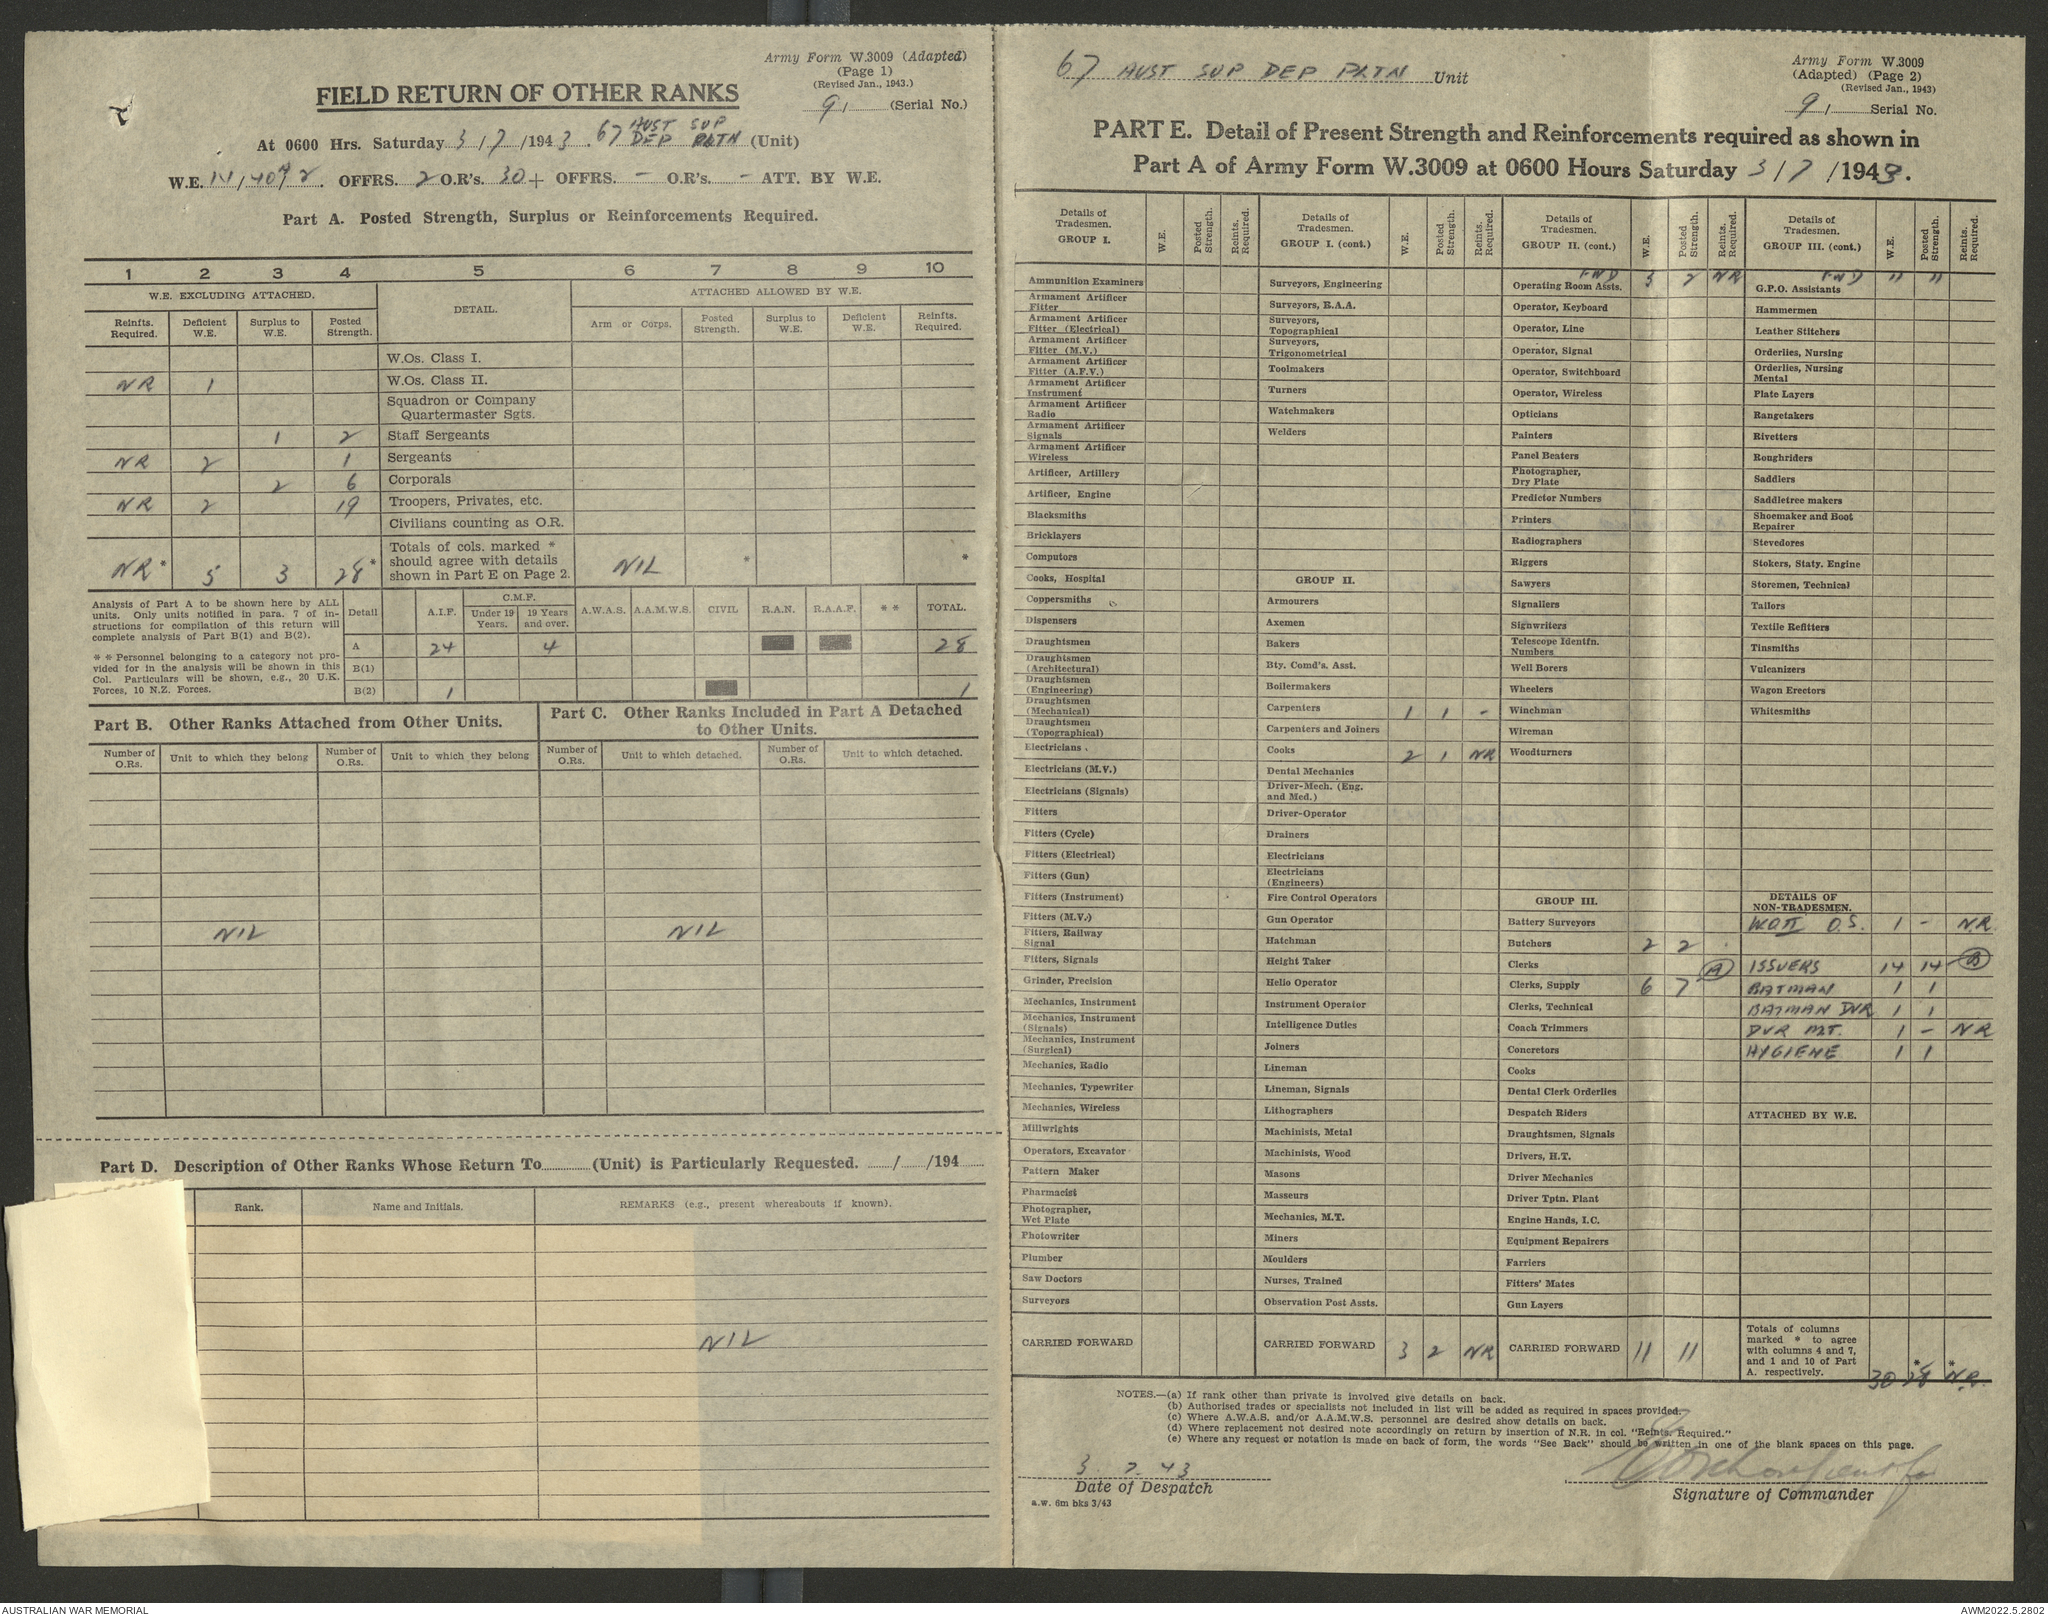 Army Form W.3009 (Adapted)
(Page 1)
(Revised Jan., 1943.)
FIELD RETURN OF OTHER RANKS
91 (Serial No.)
At 0600 Hrs. Saturday 3/7/1943. 67 AUST SUP DEP PLTN (Unit)
W.E. OFFRS. 2 O.R's. 30 + OFFRS. - O.R's. - ATT. BY W.E.
Part A. Posted Strength, Surplus or Reinforcements Required.
1 2 3 4 5 6 7 8 9 10
W.E. EXCLUDING ATTACHED. DETAIL. ATTACHED ALLOWED BY W.E.
Reinfts. Required. Deficient W.E. Surplus to W.E. Posted Strength. Arm or Corps. Posted Strength. Surplus to W.E. Deficient W.E. Reinfts. Required.
W.Os. Class I.
NR 1 W.Os. Class II.
Squadron or Company Quartermaster Sgts.
1 2 Staff Sergeants
NR 2 1 Sergeants
2 6 Corporals
NR 2 19 Troopers, Privates, etc.
Civilians counting as O.R.
NR* 5 3 28* Totals of cols. marked * should agree with details shown in Part E on Page 2. NIL * *
Analysis of Part A to be shown here by ALL units. Only units notified in para. 7 of instructions for compilation of this return will complete analysis of Part B(1) and B(2).
** Personnel belonging to a category not provided for in the analysis will be shown in this Col. Particulars will be shown, e.g., 20 U.K. Forces, 10 N.Z. Forces.
Detail A.I.F. C.M.F. Under 19 Years. 19 Years and over. A.W.A.S. A.A.M.W.S. CIVIL R.A.N. R.A.A.F. ** TOTAL.
A 24 4 28
B(1)
B(2) 1 1
Part B. Other Ranks Attached from Other Units.
Number of O.Rs. Unit to which they belong Number of O.Rs. Unit to which they belong
NIL
Part C. Other Ranks Included in Part A Detached to Other Units.
Number of O.Rs. Unit to which detached. Number of O.Rs. Unit to which detached.
NIL
Part D. Description of Other Ranks Whose Return To (Unit) is Particularly Requested. / /194
Rank. Name and Initials. REMARKS (e.g., present whereabouts if known).
NIL
67 AUST SUP DEP PLTN Unit
Army Form W.3009
(Adapted) (Page 2)
(Revised Jan., 1943)
91 Serial No.
PART E. Detail of Present Strength and Reinforcements required as shown in
Part A of Army Form W.3009 at 0600 Hours Saturday 3/7/1943.
Details of Tradesmen. GROUP I. W.E. Posted Strength. Reints. Required.
Ammunition Examiners
Armament Artificer Fitter
Armament Artificer Fitter (Electrical)
Armament Artificer Fitter (M.V.)
Armament Artificer Fitter (A.F.V.)
Armament Artificer Instrument
Armament Artificer Radio
Armament Artificer Signals
Armament Artificer Wireless
Artificer, Artillery
Artificer, Engine
Blacksmiths
Bricklayers
Computors
Cooks, Hospital
Coppersmiths
Dispensers
Draughtsmen
Draughtsmen (Architectural)
Draughtsmen (Engineering)
Draughtsmen (Mechanical)
Draughtsmen (Topographical)
Electricians
Electricians (M.V.)
Electricians (Signals)
Fitters
Fitters (Cycle)
Fitters (Electrical)
Fitters (Gun)
Fitters (Instrument)
Fitters (M.V.)
Fitters, Railway Signal
Fitters, Signals
Grinder, Precision
Mechanics, Instrument
Mechanics, Instrument (Signals)
Mechanics, Instrument (Surgical)
Mechanics, Radio
Mechanics, Typewriter
Mechanics, Wireless
Millwrights
Operators, Excavator
Pattern Maker
Pharmacist
Photographer, Wet Plate
Photowriter
Plumber
Saw Doctors
Surveyors
CARRIED FORWARD
Details of Tradesmen. GROUP I. (cont.) W.E. Posted Strength. Reints. Required.
Surveyors, Engineering
Surveyors, R.A.A.
Surveyors, Topographical
Surveyors, Trigonometrical
Toolmakers
Turners
Watchmakers
Welders
GROUP II.
Armourers
Axemen
Bakers
Bty. Comd's. Asst.
Boilermakers
Carpenters 1 1 -
Carpenters and Joiners
Cooks 2 1 NR
Dental Mechanics
Driver-Mech. (Eng. and Med.)
Driver-Operator
Drainers
Electricians
Electricians (Engineers)
Fire Control Operators
Gun Operator
Hatchman
Height Taker
Helio Operator
Instrument Operator
Intelligence Duties
Joiners
Lineman
Lineman, Signals
Lithographers
Machinists, Metal
Machinists, Wood
Masons
Masseurs
Mechanics, M.T.
Miners
Moulders
Nurses, Trained
Observation Post Assts.
CARRIED FORWARD 3 2 NR
Details of Tradesmen. GROUP II. (cont.) W.E. Posted Strength. Reints. Required.
FWD 3 2 NR
Operating Room Assts.
Operator, Keyboard
Operator, Line
Operator, Signal
Operator, Switchboard
Operator, Wireless
Opticians
Painters
Panel Beaters
Photographer, Dry Plate
Predictor Numbers
Printers
Radiographers
Riggers
Sawyers
Signallers
Signwriters
Telescope Identfn. Numbers
Well Borers
Wheelers
Winchman
Wireman
Woodturners
GROUP III.
Battery Surveyors
Butchers 2 2
Clerks
Clerks, Supply 6 7 (A)
Clerks, Technical
Coach Trimmers
Concretors
Cooks
Dental Clerk Orderlies
Despatch Riders
Draughtsmen, Signals
Drivers, H.T.
Driver Mechanics
Driver Tptn. Plant
Engine Hands, I.C.
Equipment Repairers
Farriers
Fitters' Mates
Gun Layers
CARRIED FORWARD 11 11
Details of Tradesmen. GROUP III. (cont.) W.E. Posted Strength. Reints. Required.
FWD 11 11
G.P.O. Assistants
Hammermen
Leather Stitchers
Orderlies, Nursing
Orderlies, Nursing Mental
Plate Layers
Rangetakers
Rivetters
Roughriders
Saddlers
Saddletree makers
Shoemaker and Boot Repairer
Stevedores
Stokers, Staty. Engine
Storemen, Technical
Tailors
Textile Refitters
Tinsmiths
Vulcanizers
Wagon Erectors
Whitesmiths
DETAILS OF NON-TRADESMEN.
W.O.II O.S. 1 - N.R.
ISSUERS 14 14 (B)
BATMAN 1 1
BATMAN DVR 1 1
DVR M.T. 1 - NR
HYGIENE 1 1
ATTACHED BY W.E.
Totals of columns marked * to agree with columns 4 and 7, and 1 and 10 of Part A. respectively. 30 28* N.R.*
NOTES.—(a) If rank other than private is involved give details on back.
(b) Authorised trades or specialists not included in list will be added as required in spaces provided.
(c) Where A.W.A.S. and/or A.A.M.W.S. personnel are desired show details on back.
(d) Where replacement not desired note accordingly on return by insertion of N.R. in col. "Reints. Required."
(e) Where any request or notation is made on back of form, the words "See Back" should be written in one of the blank spaces on this page.
3 . 7 . 43
Date of Despatch
Signature of Commander
a.w. 6m bks 3/43
AUSTRALIAN WAR MEMORIAL
AWM2022.5.2802